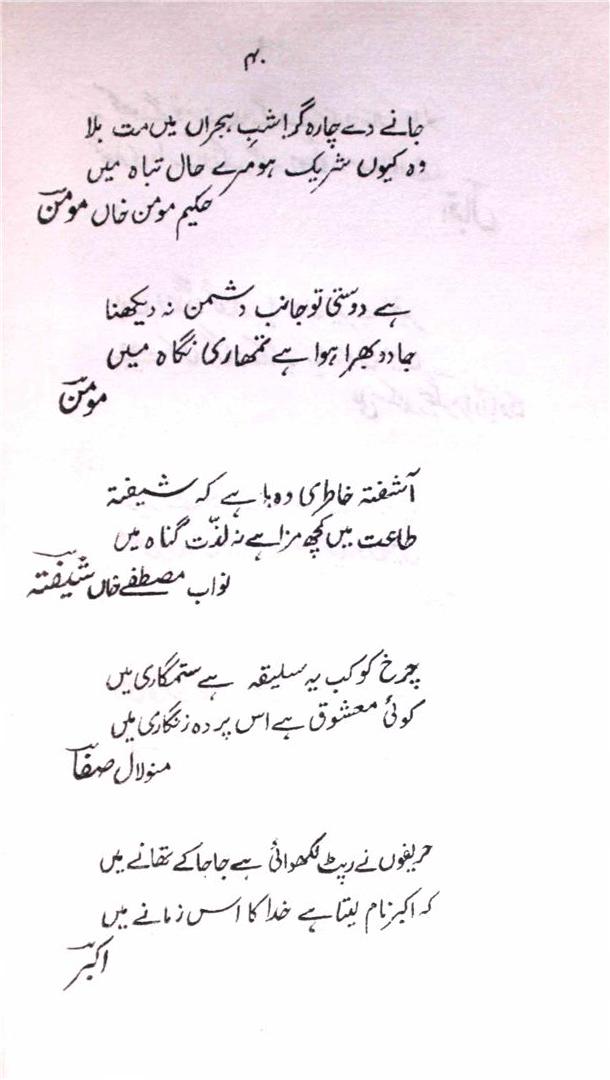 ۴۰
جانے دے چارہ گر! شبِ ہجراں میں مت بلا
وہ کیوں شریک ہو مرے حال تباہ میں
حکیم مومن خاں مومنؔ
ہے دوستی تو جانب دشمن نہ دیکھنا
جادو بھرا ہوا ہے تمھاری نگاہ میں
مومنؔ
آشفتہ خاطری وہ بلا ہے کہ شیفتہ
طاعت میں کچھ مزا ہے نہ لذّت گناہ میں
نواب مصطفےٰ خاں شیفتہؔ
چرخ کو کب یہ سلیقہ ہے ستمگاری میں
کوئی معشوق ہے اس پردہ زنگاری میں
منولال صفاؔ
حریفوں نے رپٹ لکھوائی ہے جا جا کے تھانے میں
کہ اکبر نام لیتا ہے خدا کا اس زمانے میں
اکبرؔ